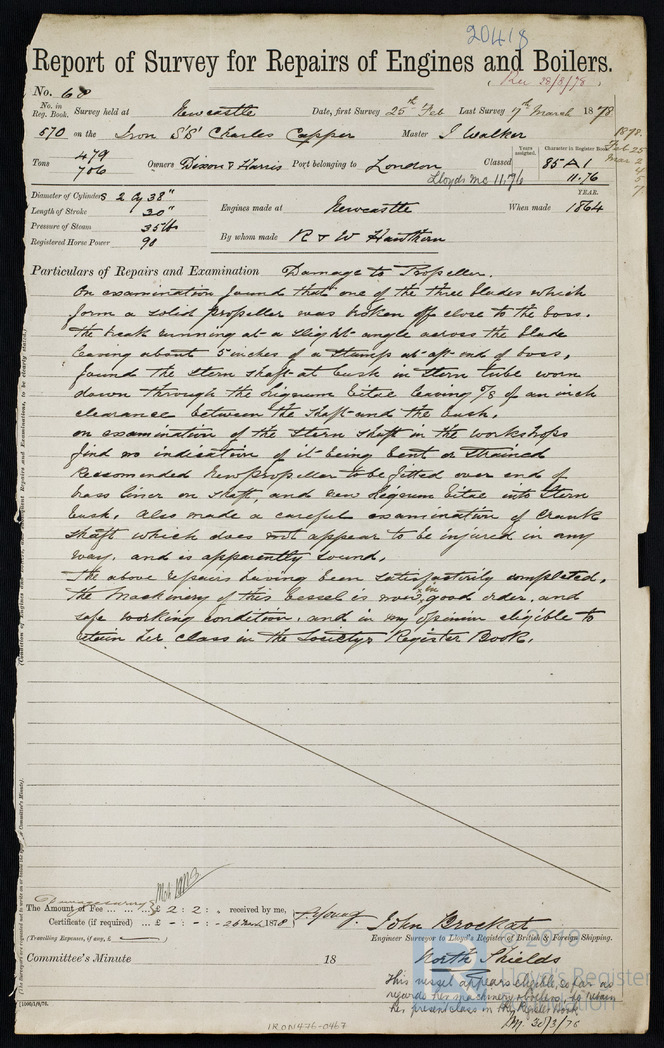 20418
Report of Survey for Repairs of Engines and Boilers.
Rec 28/3/78
No. 68
No. in Reg. Book. Survey held at Newcastle Date, first Survey 25th Feb Last Survey 7th March 1878
570 on the Iron S.S. Charles Capper Master J Walker
1878.
Feb 25
Mar 2
4
5
7
Tons 479
706
Owners Dixon & Harris Port belonging to London Classed Years assigned. Character in Register Book
85 A 1
Lloyds MC 11.76 11.76
Diameter of Cylinders 2 Cy 38"
Length of Stroke 30"
Pressure of Steam 35 lb
Registered Horse Power 90
Engines made at Newcastle When made YEAR. 1864
By whom made R & W Hawthorn
Particulars of Repairs and Examination Damage to Propeller.
On examination found that one of the three blades which
form a solid propeller was broken off close to the boss.
the break running at a slight angle across the blade
leaving about 5 inches of a stump at aft end of boss,
found the stern shaft at bush in stern tube worn
down through the Lignum Vitae leaving 7/8 of an inch
clearance between the shaft and the bush.
on examination of the stern shaft in the workshops
find no indication of it being bent or strained
Recommended new propeller to be fitted over end of
brass liner on shaft, and new Lignum Vitae into stern
bush. Also made a careful examination of Crank
shaft which does not appear to be injured in any
way. and is apparently sound.
The above repairs having been satisfactorily completed.
the Machinery of this Vessel is now in good order, and
safe working condition. and in my opinion eligible to
retain her class in the Society's Register Book.
The Amount of Fee £ 2 : 2 : received by me,
Damage survey
Certificate (if required) £ - : - : - 26 March 1878
(Travelling Expenses, if any, £ )
John Brockat
Engineer Surveyor to Lloyd's Register of British & Foreign Shipping.
Committee's Minute 18
North Shields
This vessel appears eligible, so far as
regards her machinery & boilers, to retain
her present class in the Register Book
30/3/78
© 2019
Lloyd's Register
Foundation
LRF
IRON476-0467